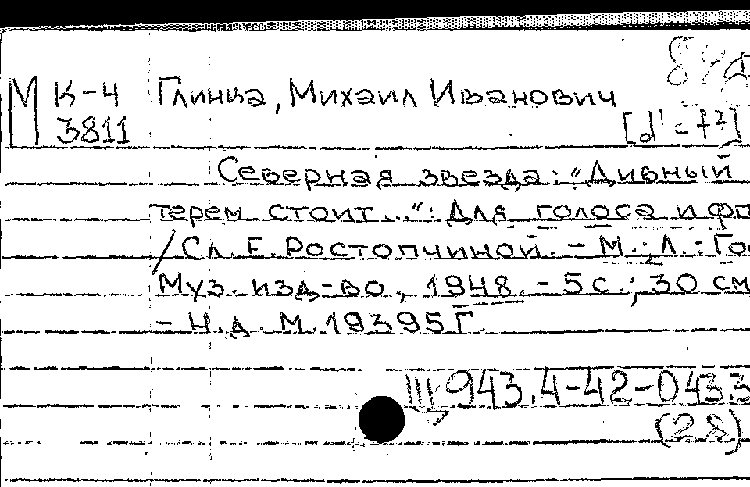 М К-4 Глинка, Михаил Иванович
3811 [d'-f²]
Северная звезда: "Дивный
терем стоит...": Для голоса и фп.
/Сл. Е. Ростопчиной. - М.; Л.: Гос
Муз. изд-во, 1948. - 5 с.; 30 см
- Н.д. М.19395Г
III 943.4-42-0433
(28)